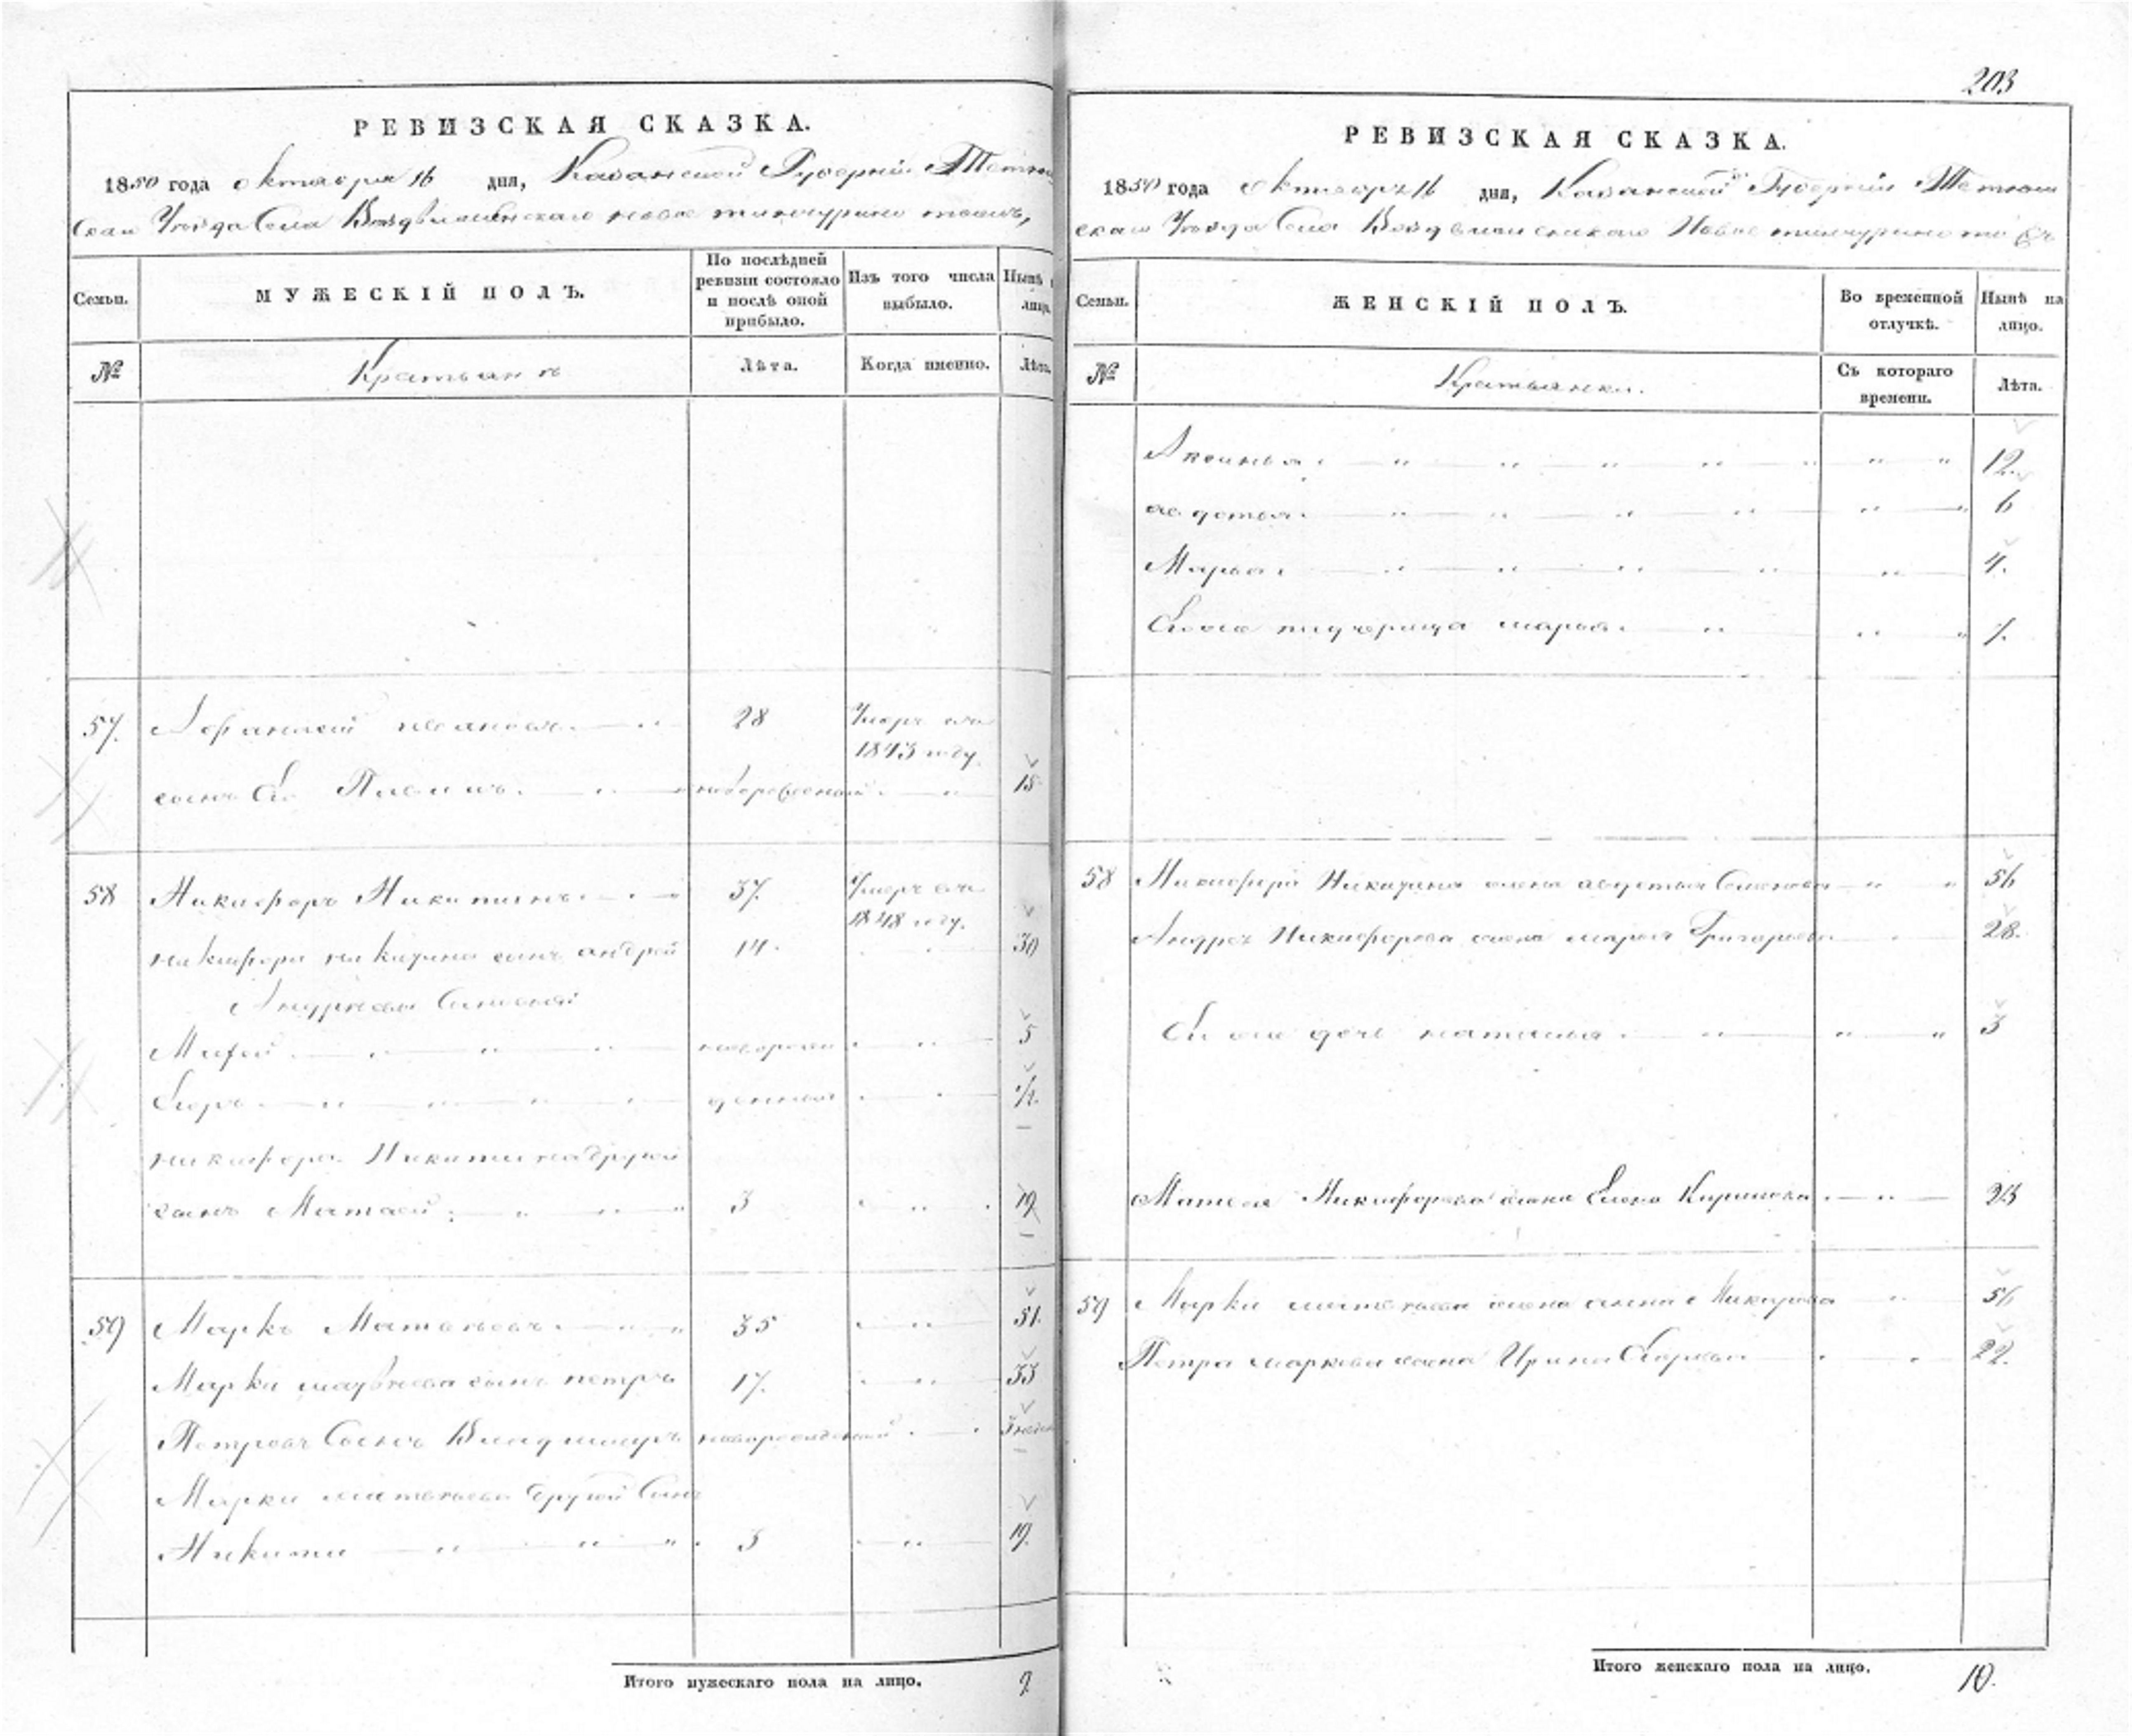 РЕВИЗСКАЯ СКАЗКА.
1850 года октября 16 дня, Казанской Губернiи Тетюш
скаго Уезда Села Воздвиженскаго новое тинчурино тожъ,
Семьи.
МУЖЕСКIЙ ПОЛЪ.
По послѣдней ревизiи состояло и послѣ оной прибыло.
Изъ того числа выбыло.
Нынѣ лицо.
№
Крестьянѣ
Лѣта.
Когда именно.
Лѣта.
57. Афанасей ивановъ 28 Умеръ въ
1843 году.
сынъ Ево новорожденной 15
58 Никифоръ Никитинъ 37. Умеръ въ
1848 году.
никифора никитина сынъ андрей 14. 30
Андреевы Сыновья
новорож 5
Егоръ денныя 1/2.
никифора Никитина другой
сынъ Матвей 3 19
59 Маркъ Матвеевъ 35 51.
Марка матвеева сынъ петръ 17. 33
Петровъ Сынъ Владимиръ новорожденной 3 недели
Марка матвеева другой Сынъ
Никита 3 19.
Итого мужескаго пола на лицо. 9.
203
РЕВИЗСКАЯ СКАЗКА.
1850 года октября 16 дня, Казанской Губернiи Тетюш
скаго Уезда Села Воздвиженскаго Новое тинчурино то жъ
Семьи.
ЖЕНСКIЙ ПОЛЪ.
Во временной отлучкѣ.
Нынѣ на лицо.
№
Крестьянки.
Съ котораго времени.
Лѣта.
Аксинья 12.
авдотья 6
Марья 4.
Ево падчерица марья 7.
58 Никифора Никитина жена авдотья Семенова 56
Андрея Никифорова жена марья Григорьева 28.
Ево дочь наталья 3
Матвея Никифорова жена Елена Кирилова 23
59 Марка матвеева жена 56
Петра маркова жена Ирина 22.
Итого женскаго пола на лицо. 10.